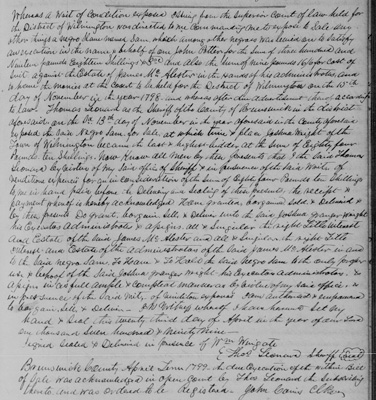 Whereas a Writ of Condition exponas issuing from the Superior Court of law held for
the District of Wilmington was directed to me Commanding me to expose to Sale among
other things a negro Man named Sam, which among other negroes was levied on to Satisfy
an execution in the name & behalf of one John Potter for the Sum of three hundred and
Nineteen pounds Eighteen Shillings & and also the Sum of nine pounds 16/6 for Cost of
Suit against the Estate of James McAlester in the hands of his administrators and
to have the Monies at the Court to be held for the District of Wilmington on the
day of November in the year 1798 and whereas after due advertisement thereof according
to Law Thomas Leonard as the Sheriff of the County of Brunswick in the district
aforesaid on the 13th day of November in the year aforesaid in the County aforesaid
exposed the said Negro Sam for Sale, at which time & place Joshua Wright of the
Town of Wilmington became the last & highest bidder at the Sum of Eighty four
Pounds ten Shillings. Now Know All Men by these presents that I the said Thomas
Leonard by virtue of my said office of Sheriff & in pursuance of the said Writ of
venditioni exponas for & in Consideration of the Sum of Eighty four Pounds ten Shillings
to me in hand paid before the Delivery and Sealing of these presents the receipt &
payment whereof is hereby acknowledged Have granted, bargained Sold & Delivered &
by these presents Do grant, bargain, Sell, & Deliver unto the said Joshua Wright
his Executors Administrators & assigns all & Singular the right Title Interest
and Estate of the said James McAlester and all & Singular the right Title
Interest and Estate of the Administrators of the said James McAlester in and
to the said negro Sam. To Have & To Hold the said negro Sam to the only proper
use & behoof of the said Joshua Wright his Executors administrators &
assigns in as full ample & compleat manner as by virtue of my said office &
in pursuance of the said Writ of venditioni exponas I am authorised & empowered
to bargain Sell & Deliver. In Witness whereof I have hereunto Set my
hand & Seal this twenty third day of April in the year of our Lord
one thousand Seven hundred & ninety Nine
Signed Sealed & Delivered in presence of Wm Wingate
Thos Leonard Sheriff (Seal)
Brunswick County April Term 1799. the due execution of the within Bill
of Sale was acknowledged in open Court by Thos Leonard the Subscribing
thereto, and was ordered to be Registered. John Conis Clk